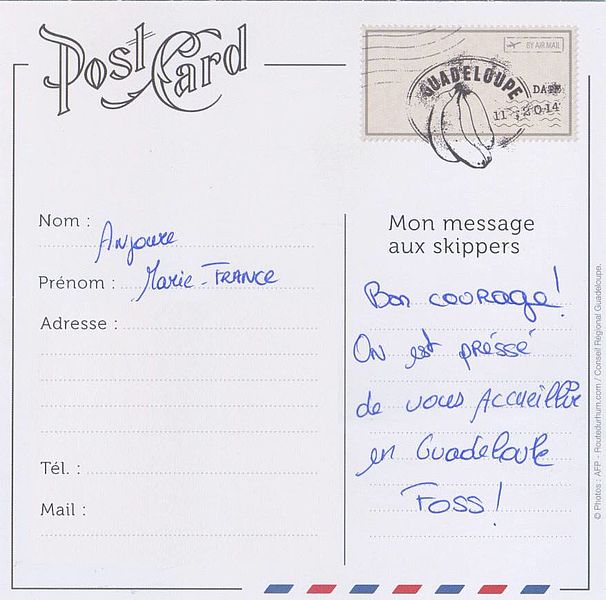 Post Card
BY AIR MAIL
GUADELOUPE
DATE
11, 2014
Nom :
Anjoure
Prénom :
Marie-France
Adresse :
Tél. :
Mail :
Mon message
aux skippers
Bon courage !
On est préssé
de vous Accueillir
en Guadeloupe
Foss !
© Photos : AFP - Routedurhum.com / Conseil Régional Guadeloupe.